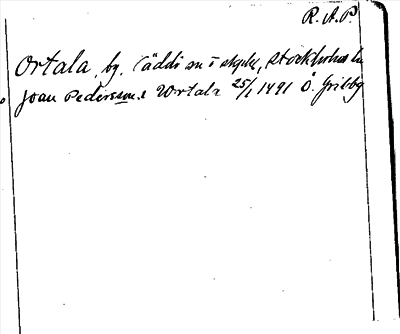 R. A. P.
Ortala, by. Väddö sn o skpl, Stockholms län
Joan Pedersson i Wrtala 25/1 1491 Ö.